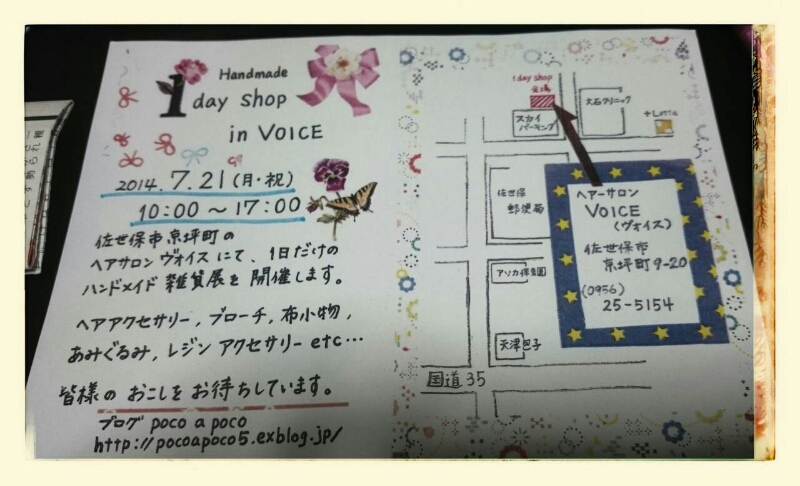 Handmade
1 day shop
in VOICE
2014. 7.21 (月・祝)
10:00 〜 17:00
佐世保市京坪町の
ヘアサロン ヴォイスにて、1日だけの
ハンドメイド 雑貨展を 開催します。
ヘアアクセサリー, ブローチ, 布小物,
あみぐるみ, レジン アクセサリー etc…
皆様の おこしを お待ちしています。
ブログ poco a poco
http://pocoapoco5.exblog.jp/
1day shop
会場
大石クリニック
スカイ
パーキング
+Lotta
佐世保
郵便局
アソカ保育園
天津包子
国道35
ヘアーサロン
VOICE
(ヴォイス)
佐世保市
京坪町9-20
(0956)
25-5154